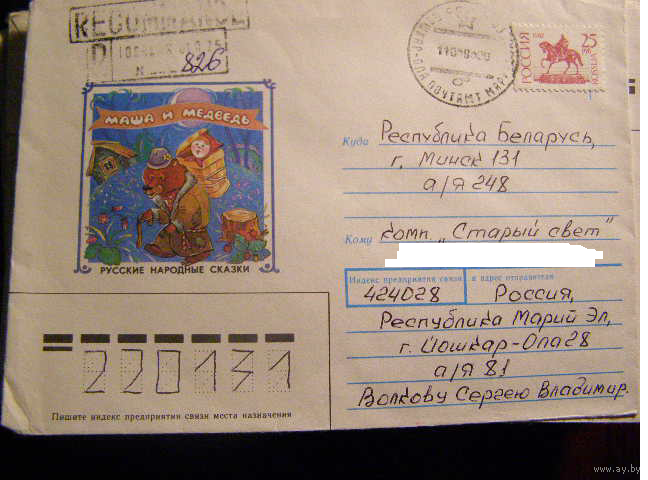 RECOMMANDE
826
РОССИЯ 1992 25
ROSSIJA
МАША И МЕДВЕДЬ
РУССКИЕ НАРОДНЫЕ СКАЗКИ
Куда Республика Беларусь,
г. Минск 131
а/я 248
Кому комп. „Старый свет"
Индекс предприятия связи и адрес отправителя
424028 Россия,
Республика Марий Эл,
г. Йошкар-Ола 28
а/я 81
Волкову Сергею Владимир.
220131
Пишите индекс предприятия связи места назначения
www.ay.by